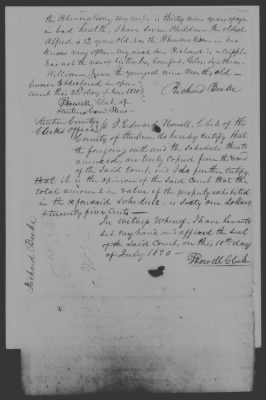 the Rheumatism, my wife is thirty nine years of age
in bad health, I have Seven Children, the oldest
Alfred is 12 years old has the Rheumatism in his
knees very often, my next son Richard is a cripple
has not the use of his limbs,
William the youngest nine Months old
Sworn & Subscribed in open
Court this 23d day of June 1820
Richard Beebe
E Howell Clerk of
Steuben County
Steuben County
Clerks Office
ss. I Edward Howell, Clerk of the
County of Steuben, do hereby certify that
the foregoing oath and the Schedule thereto
annexed, are truly Copied from the record
of the said Court; and I do further certify,
that it is the opinion of the said Court that the
total amount in value of the property exhibited
in the aforesaid Schedule, is sixty one dollars
& twenty five Cents
In Witness Whereof, I have hereunto
set my hand, and affixed the seal
of the Said Court, on this 10th day
of July 1820
E Howell Clerk
Richard Beebe